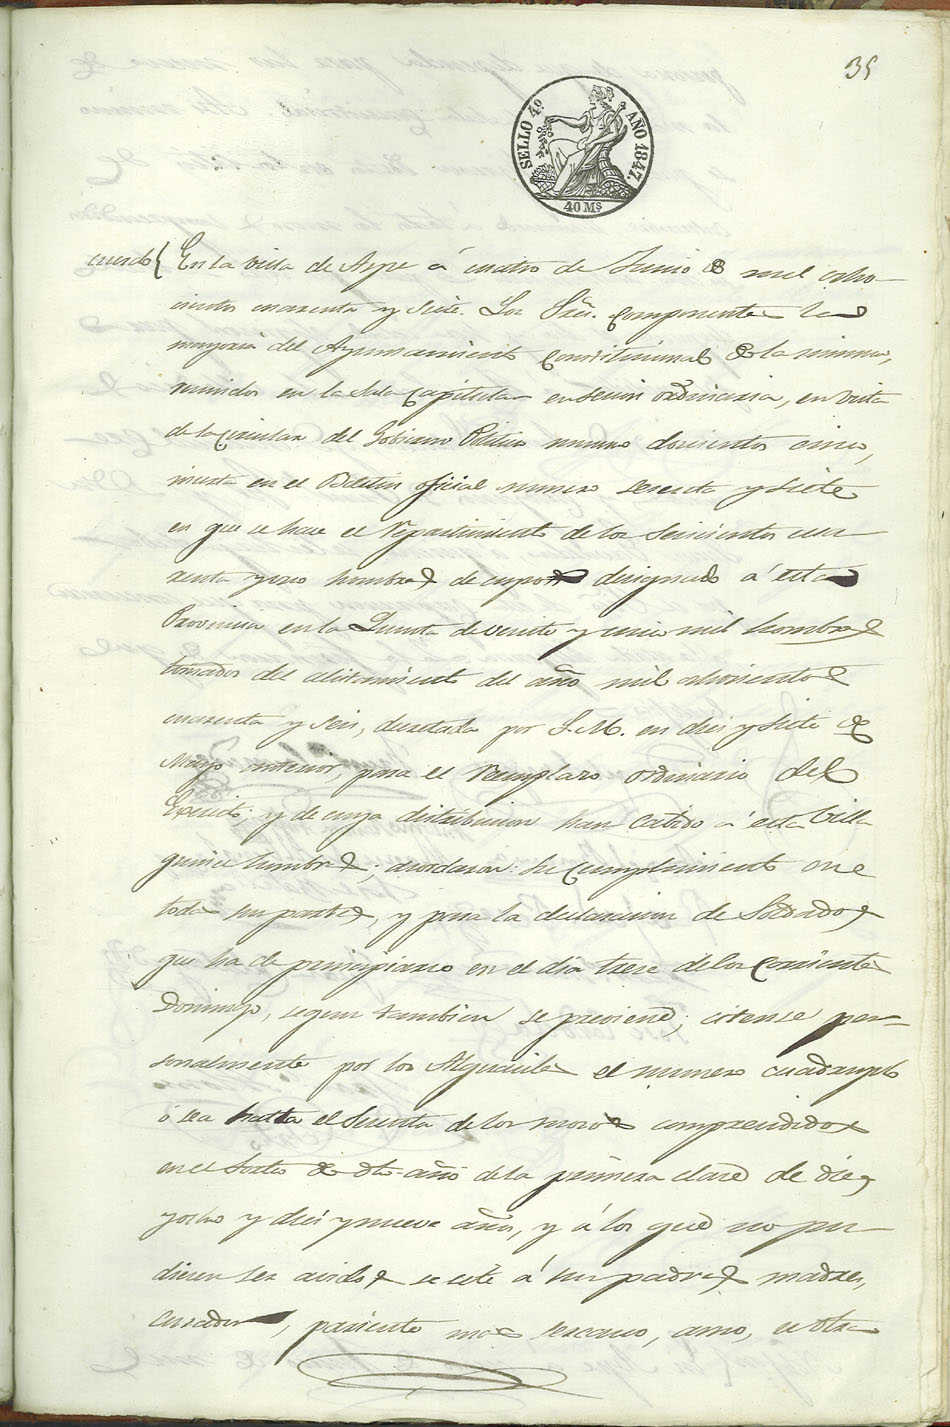 35
SELLO 4º AÑO 1847.
40 Ms
cuerdo { En la villa de Aspe á cuatro de Junio de mil ocho-
cientos cuarenta y siete. Los Sres. componentes la
mayoria del Ayuntamiento Constitucional de la misma,
reunidos en la Sala Capitular en sesion ordinaria, en vista
de la circular del Gobierno Politico numero doscientos cinco,
inserta en el Boletin oficial numero sesenta y siete
en que se hace el repartimiento de los seiscientos cua-
renta y uno hombres de cupo designado á esta
Provincia en la Quinta de veinte y cinco mil hombres
tomados del alistamiento del año mil ochocientos
cuarenta y seis, decretada por S. M. en diez y siete de
Mayo anterior, para el reemplazo ordinario del
Egercito; y de cuya distribucion han cabido á esta Villa
quince hombres; acordaron: Su cumplimiento en
todas sus partes, y para la declaracion de Soldados
que ha de principiarse en el dia trece de los corrientes
Domingo, segun tambien se previene; citense per-
sonalmente por los Alguaciles el numero cuadruplo
ó sea hasta el sesenta de los mozos comprendidos
en el sorteo de dho. año de la primera clase de diez
y ocho y diez y nueve años, y á los que no pu-
diesen ser avidos se cite á sus padres, madres,
curadores, pariente mas cercano, amo, u otra